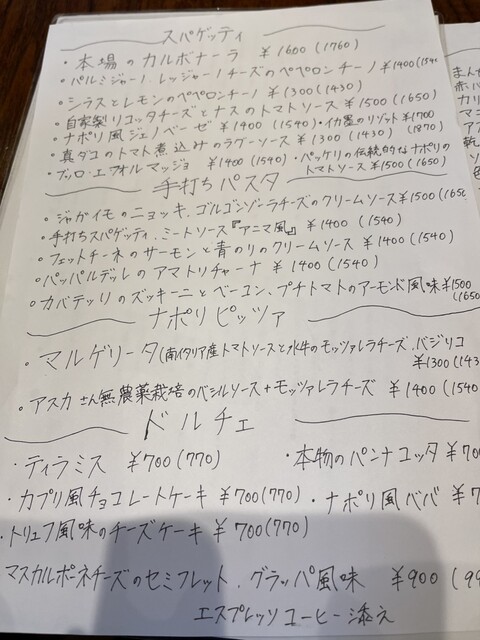 スパゲッティ
・本場のカルボナーラ ￥1600(1760)
・パルミジャーノ.レッジャーノチーズのペペロンチーノ ￥1400(1540
・シラスとレモンのペペロンチーノ ￥1300(1430)
・自家製リコッタチーズとナスのトマトソース ￥1500(1650)
・ナポリ風ジェノベーゼ ￥1400(1540)・イカ墨のリゾット ￥1700
(1870)
・真ダコのトマト煮込みのラグーソース ￥1300(1430)
・ブッロ・エフォルマッジョ ￥1400(1540)・パッケリの伝統的なナポリの
トマトソース ￥1500(1650)
手打ちパスタ
・ジャガイモのニョッキ.ゴルゴンゾーラチーズのクリームソース ￥1500(1650
・手打ちスパゲッティ.ミートソース『アニマ風』 ￥1400 (1540)
・フェットチーネのサーモンと青のりのクリームソース ￥1400(1540)
・パッパルデッレのアマトリチャーナ ￥1400(1540)
・カバテッリのズッキーニとベーコン、プチトマトのアーモンド風味 ￥1500
(1650
ナポリピッツァ
・マルゲリータ(南イタリア産トマトソースと水牛のモッツァレラチーズ.バジリコ
￥1300(143
・アスカさん無農薬栽培のバジルソース+モッツァレラチーズ ￥1400(1540
ドルチェ
・ティラミス ￥700(770) ・本物のパンナコッタ ￥70
・カプリ風チョコレートケーキ ￥700(770) ・ナポリ風ババ ￥7
・トリュフ風味のチーズケーキ ￥700(770)
マスカルポーネチーズのセミフレット.グラッパ風味 ￥900(99
エスプレッソコーヒー添え